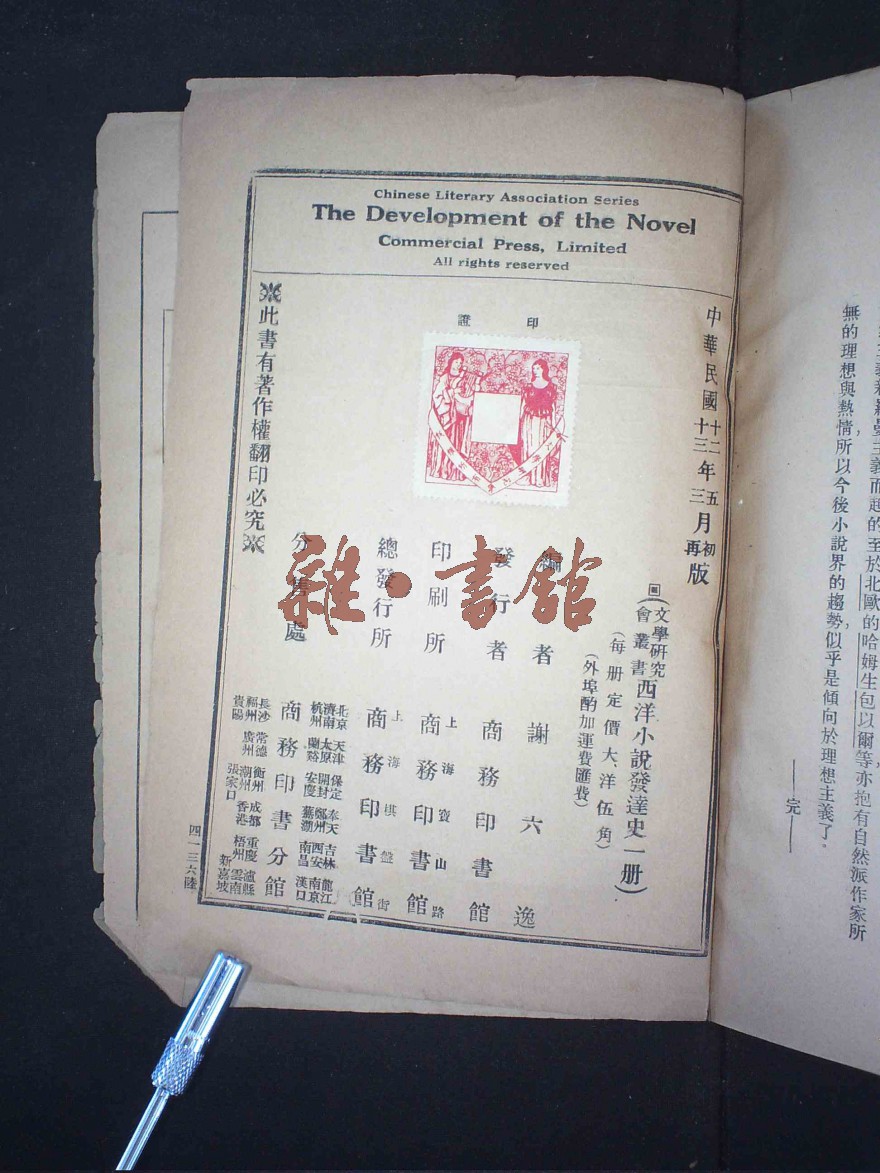 Chinese Literary Association Series
The Development of the Novel
Commercial Press, Limited
All rights reserved
無的理想與熱情所以今後小說界的趨勢,似乎是傾向於理想主義了。
——完——
中華民國十二年五月初版
十三年三月再版
(文學研究會叢書西洋小說發達史一册)
(每册定價大洋伍角)
(外埠酌加運費匯費)
印證
編者 謝六逸
發行者 商務印書館
印刷所 上海寶山路 商務印書館
總發行所 上海棋盤街 商務印書館
分售處 商務印書分館
北京 天津 保定 奉天 吉林 龍江
濟南 太原 開封 鄭州 西安 南京
杭州 蘭谿 安慶 蕪湖 南昌 漢口
長沙 常德 衡州 成都 重慶 瀘縣
福州 廣州 潮州 香港 梧州 雲南
貴陽 張家口 新嘉坡
此書有著作權翻印必究
四一三六陸
雜·書館